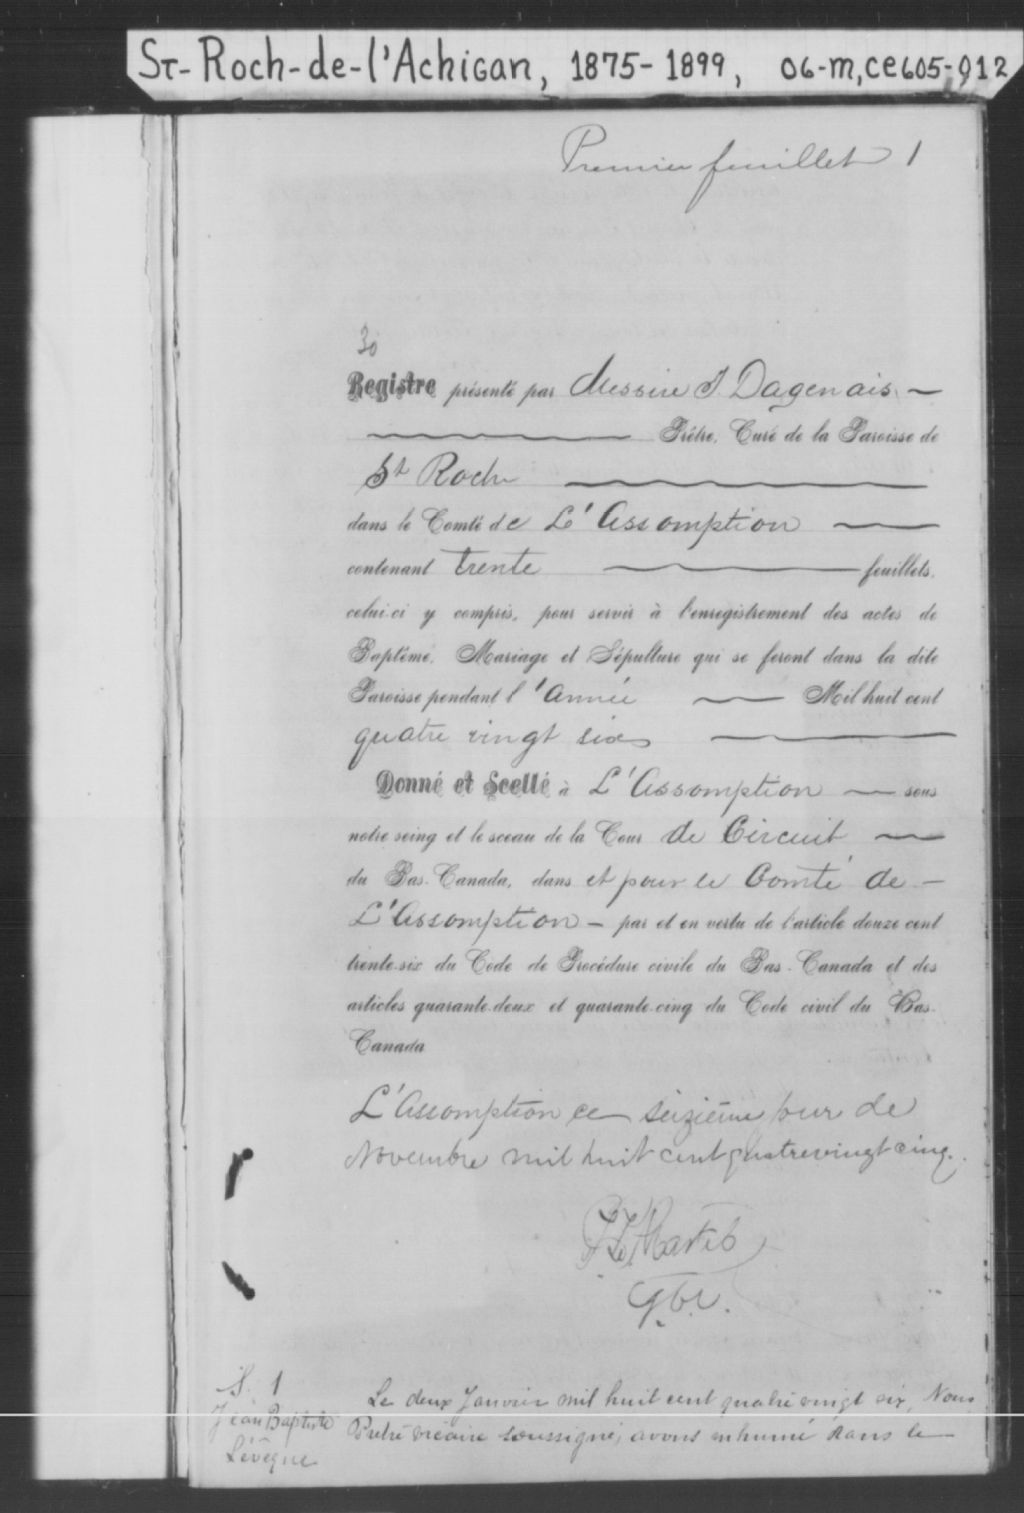 St-Roch-de-l'Achigan, 1875-1899, 06-m,ce605-912
Premier feuillet 1
30
Registre présenté par Messire J Dagenais —
Prêtre, Curé de la Paroisse de
St Roch
dans le Comté de L'Assomption
contenant trente feuillets,
celui-ci y compris, pour servir à l'enregistrement des actes de
Baptême, Mariage et Sépulture qui se feront dans la dite
Paroisse pendant l'année Mil huit cent
quatre vingt six
Donné et Scellé à L'Assomption sous
notre seing et le sceau de la Cour de Circuit
du Bas-Canada, dans et pour le Comté de —
L'Assomption — par et en vertu de l'article douze cent
trente-six du Code de Procédure civile du Bas-Canada et des
articles quarante-deux et quarante-cinq du Code civil du Bas-
Canada
L'Assomption ce seizième jour de
Novembre mil huit cent quatrevingt cinq.
S. 1
Jean Baptiste
Lévêque
Le deux Janvier mil huit cent quatre vingt six, Nous
Prêtre vicaire soussigné, avons inhumé dans le